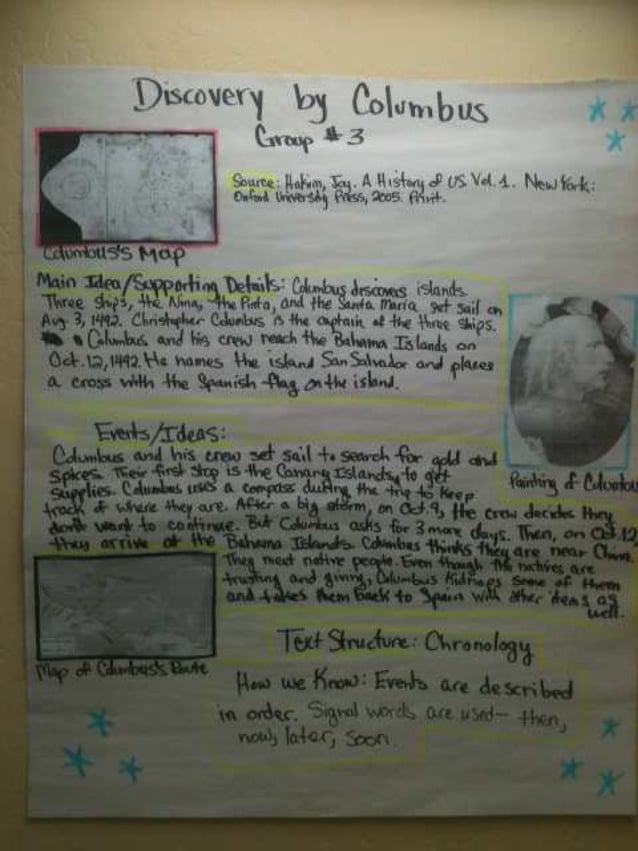 Discovery by Columbus
Group #3
Source: Hakim, Joy. A History of US Vol. 1. New York:
Oxford University Press, 2005. Print.
Columbus's Map
Main Idea/Supporting Details: Columbus discovers islands.
Three ships, the Nina, the Pinta, and the Santa Maria set sail on
Aug. 3, 1492. Christopher Columbus is the captain of the three ships.
Columbus and his crew reach the Bahama Islands on
Oct. 12, 1492. He names the island San Salvador and places
a cross with the Spanish flag on the island.
Painting of Columbus
Events/Ideas:
Columbus and his crew set sail to search for gold and
spices. Their first stop is the Canary Islands, to get
supplies. Columbus uses a compass during the trip to keep
track of where they are. After a big storm, on Oct. 9, the crew decides they
don't want to continue. But Columbus asks for 3 more days. Then, on Oct. 12
they arrive at the Bahama Islands. Columbus thinks they are near China.
They meet native people. Even though the natives are
trusting and giving, Columbus kidnaps some of them
and takes them back to Spain with other items as
well.
Map of Columbus's Route
Text Structure: Chronology
How we Know: Events are described
in order. Signal words are used— then,
now, later, soon.